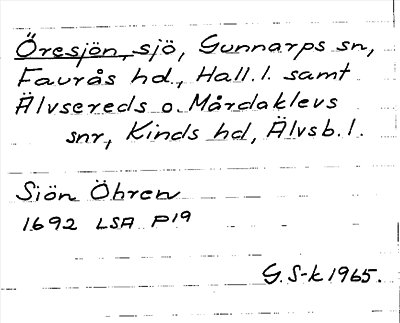 Öresjön, sjö, Gunnarps sn,
Faurås hd., Hall.l. samt
Älvsereds o. Mårdaklevs
snr, Kinds hd, Älvsb.l.
Siön Öhren
1692 LSA P19
G. S-k 1965.